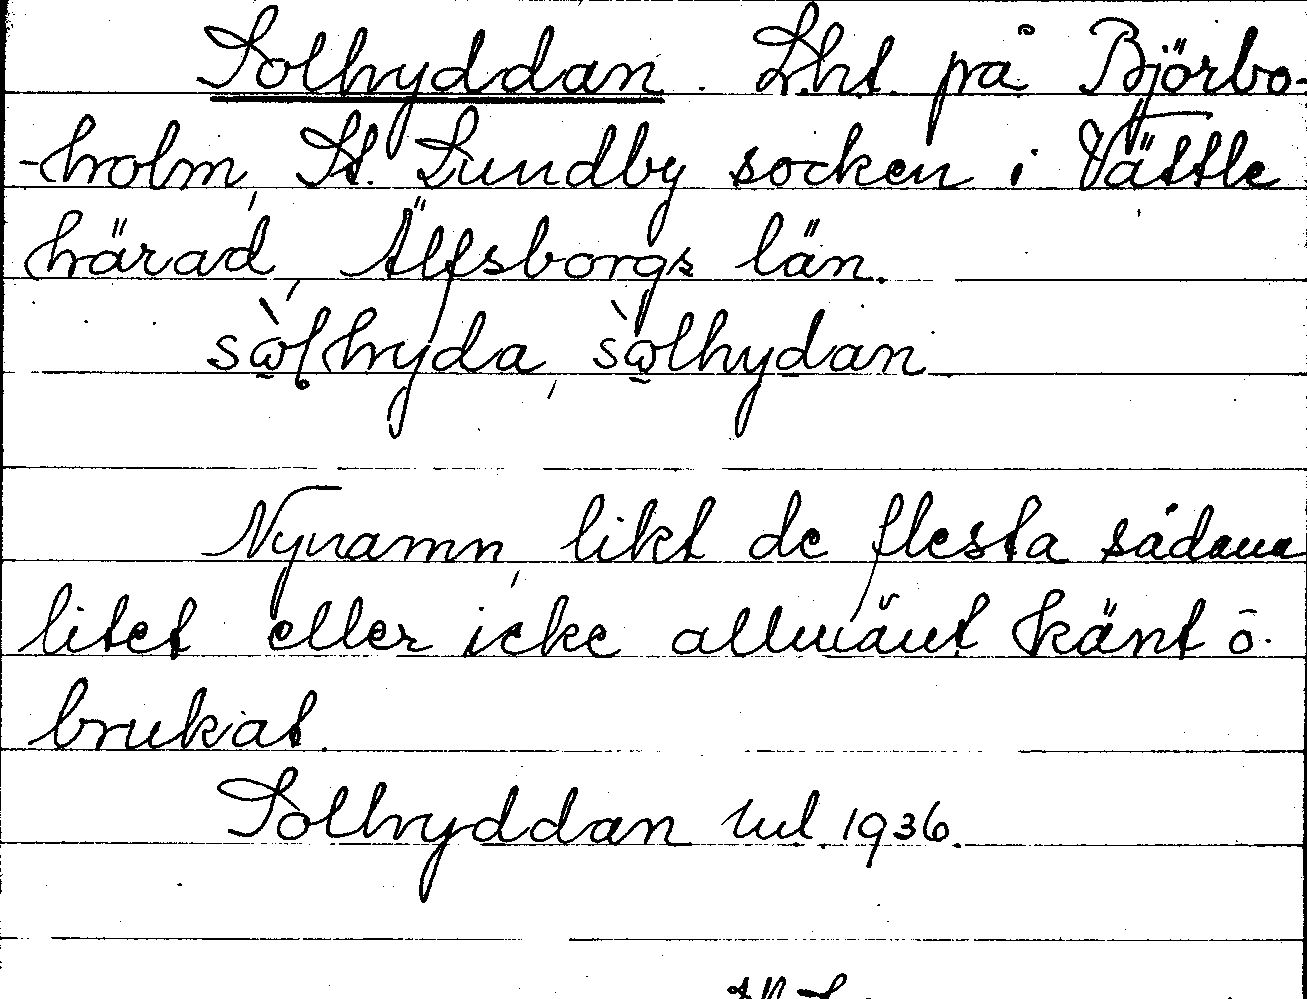 Solhyddan. Lht. på Björbo-
-holm, St. Lundby socken i Vättle
härad, Älfsborgs län.
sò̤lhyda, sò̤lhydan
Nynamn, likt de flesta sådana
litet eller icke allmänt känt o.
brukat.
Solhyddan Ml. 1936.